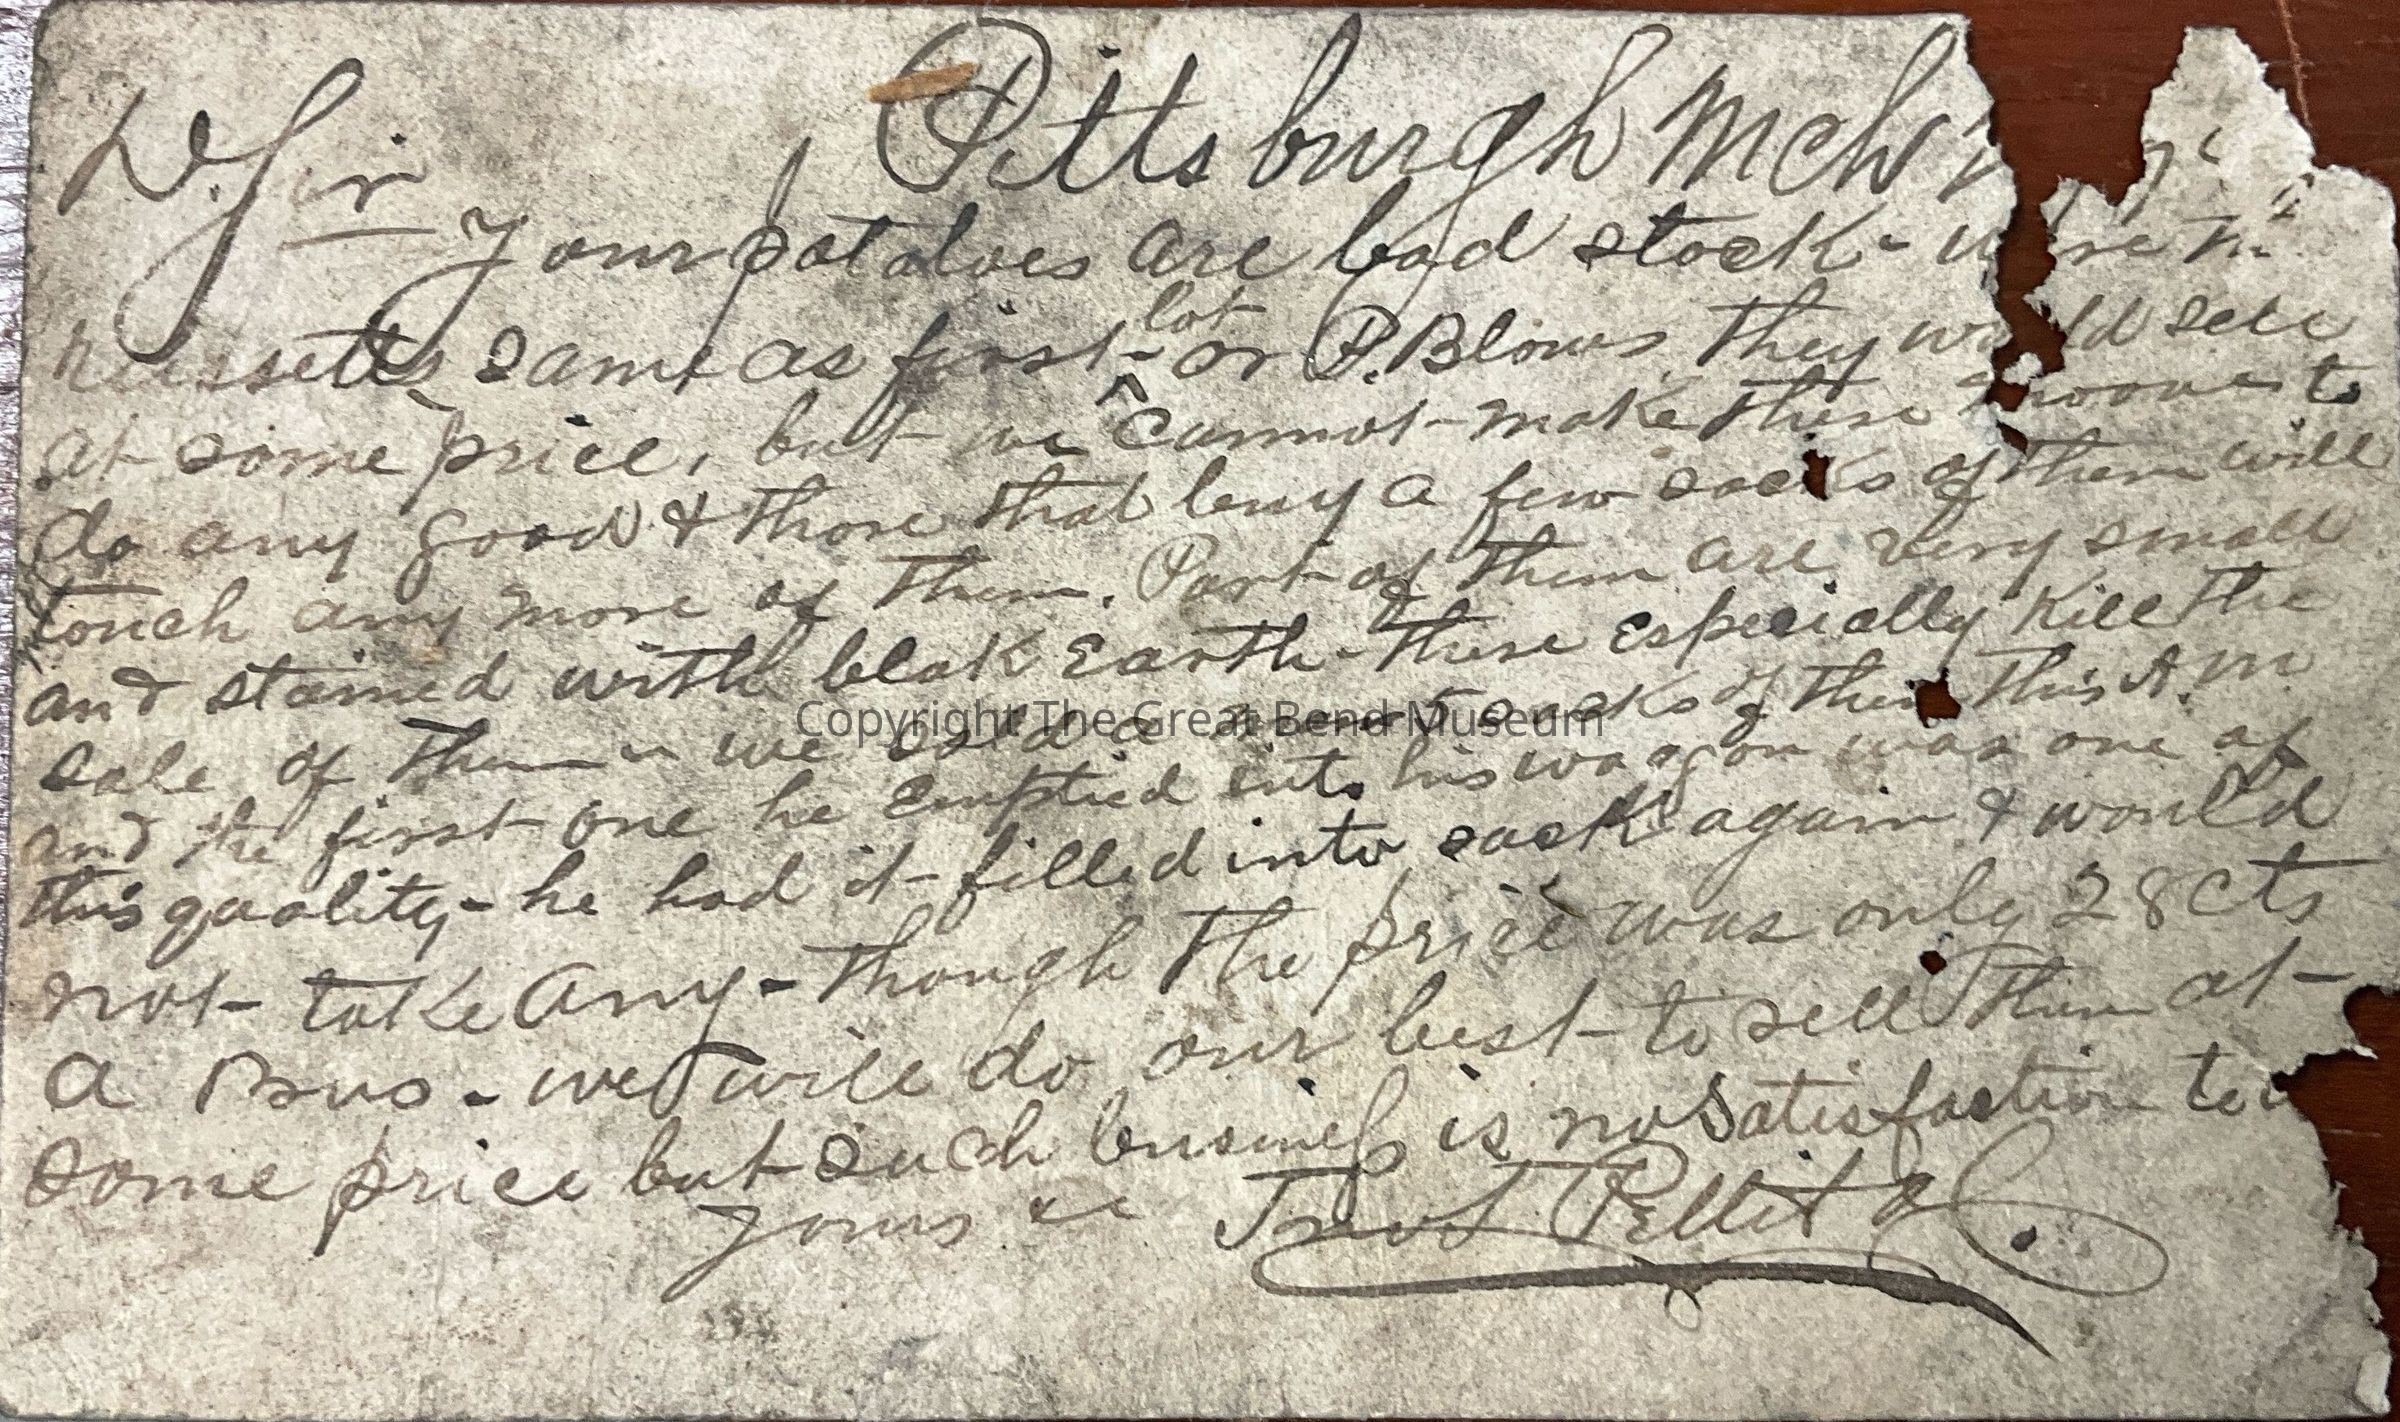 Pittsburgh Mch
D. Sir
Your potatoes are bad stock - were
Neussetts same as first lot or P. Blows they would sell
at some price, but we cannot make these to
do any good & those that buy a few sacks of them will
touch any more of them. Part of them are very small
and stained with blak Earth - these Especially Kill the
sale of them - we sold a man sacks of them this A.M
and the first one he Emptied into his wagon was one of
this quality - he had it filled into sack again & would
not take any - though the price was only 28 cts
a Bus - we will do our best to sell them at
some price but such business is no Satisfaction to
yours &c Pettit &
Copyright The Great Bend Museum